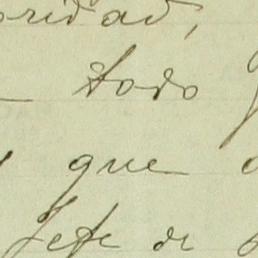 oridad,
todo
que
Jefe de